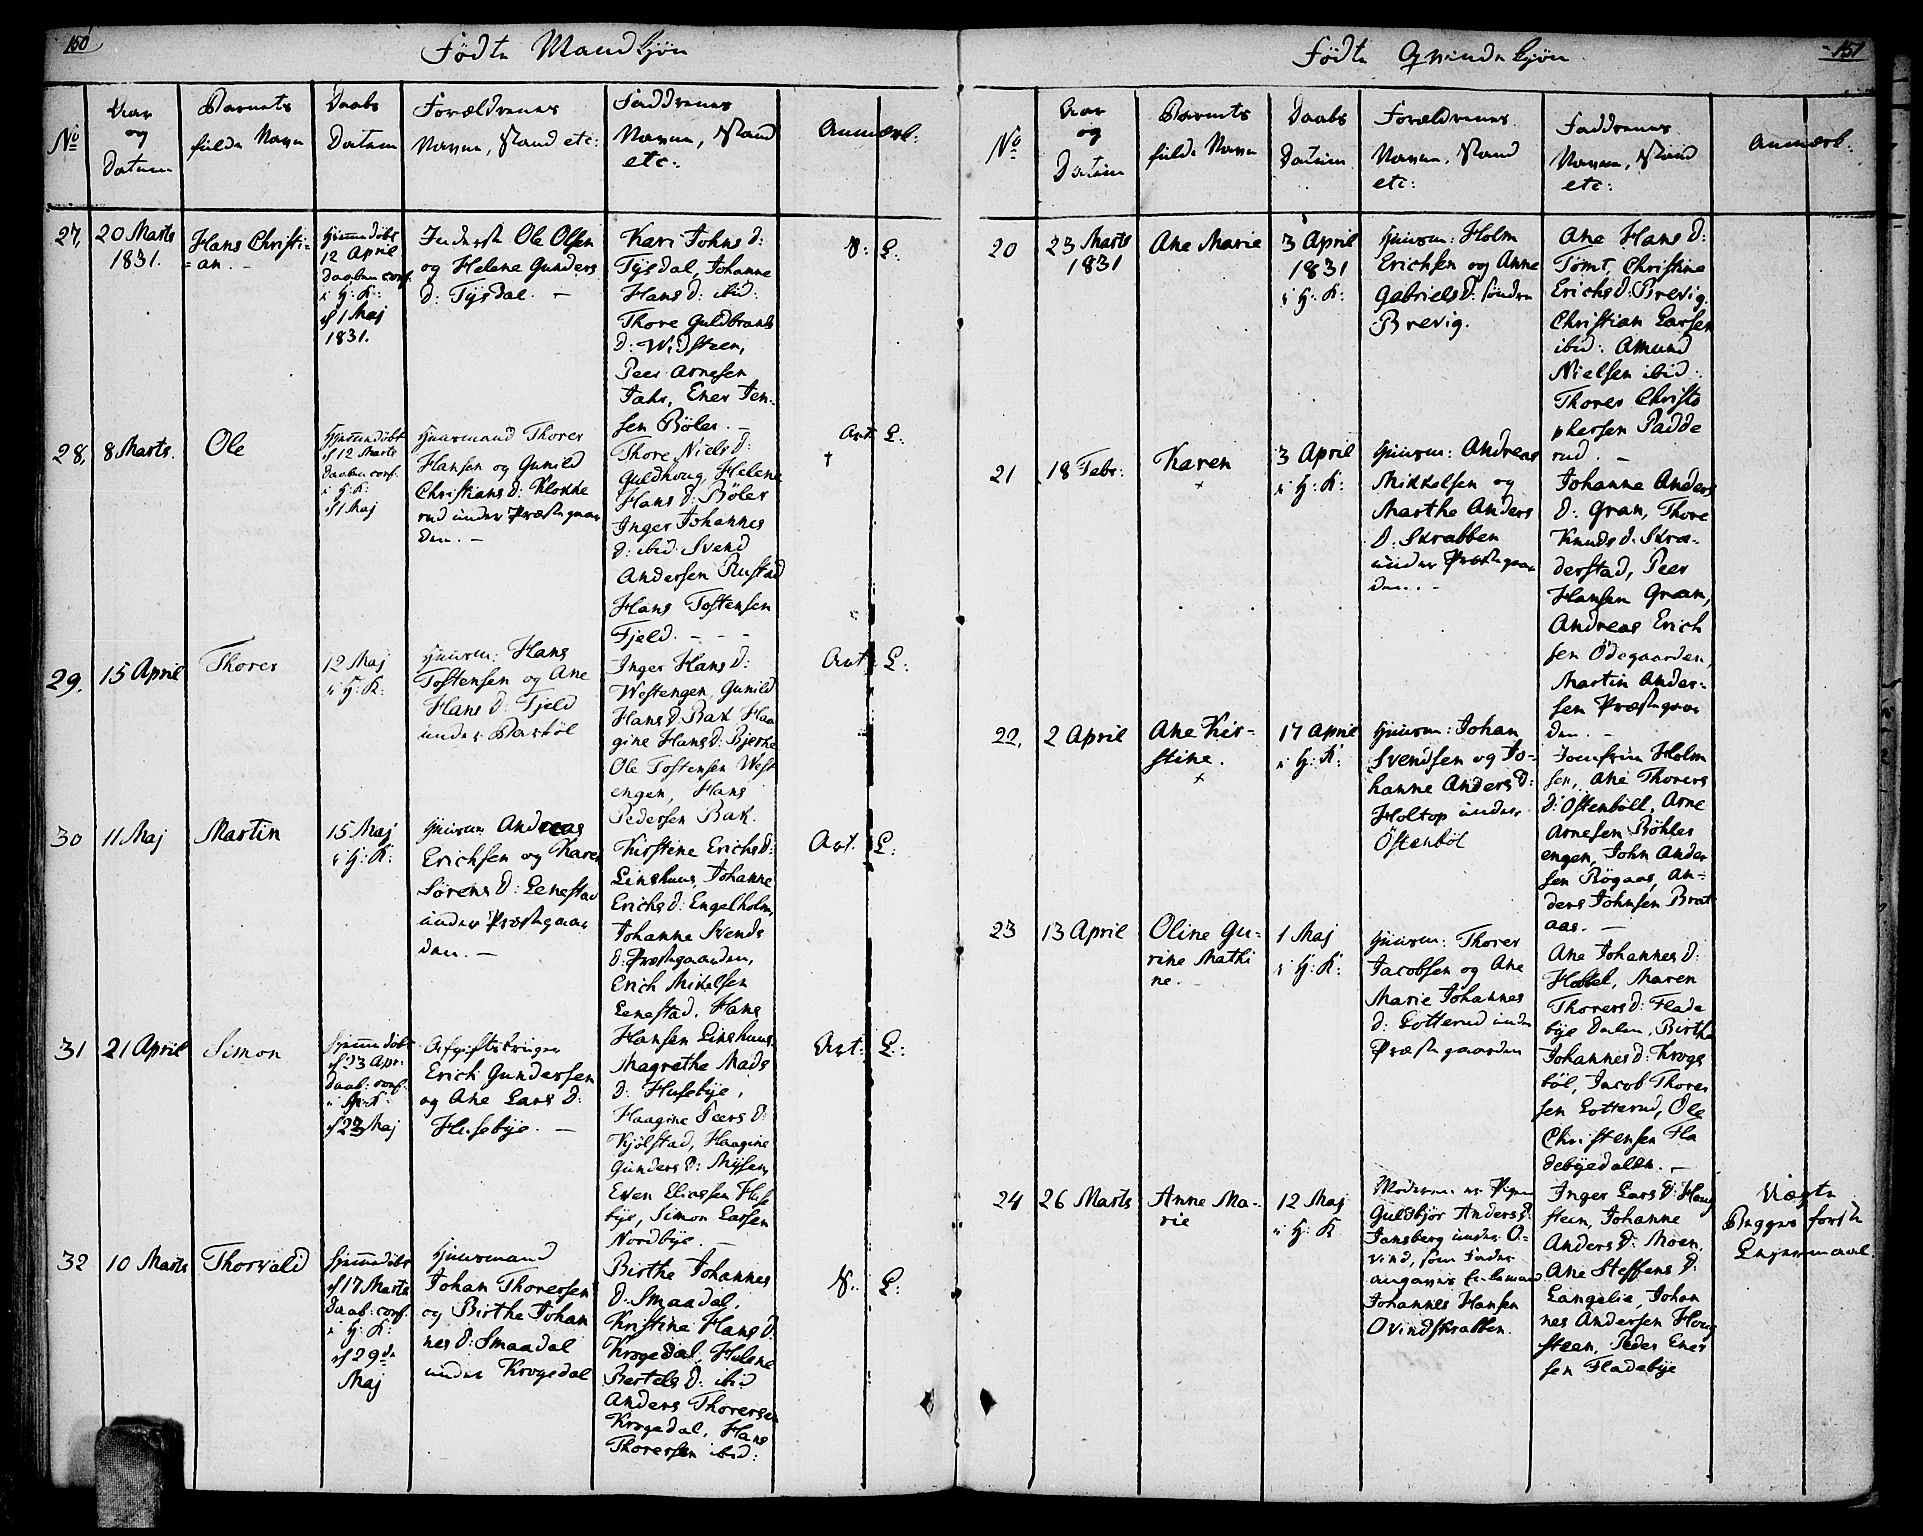 150
Födte Mandkjön
No
Aar
og
Datum
Barnets
fulde Navn
Daabs
Datum
Forældrenes
Navn, Stand etc:
Faddrenes
Navne, Stand
etc:
Anmærk:
27,
20 Marts
1831.
Hans Christi=
=an. -
Hjemmedöbt
12 April
Daaben conf.
i H: K:
d 1 Maj
1831.
Inderst Ole Olsen
og Helene Gunders
D: Tysdal. -
Kari Johns D:
Tysdal, Johanne
Hans D: ibid:
Thore Guldbrands
D: Widsteen,
Peer Arnesen
Jahr, Ener Jen-
sen Böler. -
V: L:
28,
8 Marts.
Ole
Hjemmedöbt
d 12 Marts
Daaben conf.
i H: K:
d 1 Maj
Huusmand Thorer
Hansen og Gunild
Christians D: Klokke
rud under Præstegaar
den. -
Thore Niels D:
Guldhoug, Helene
Hans D: Böler
Inger Johannes
D: ibid: Svend
Andersen Rustad
Hans Tostensen
Fjeld. - - -
†
Art: L:
29.
15 April
Thorer
12 Maj
i H: K:
Huusm: Hans
Tostensen og Ane
Hans D: Fjeld
under Barböl
Inger Hans D:
Westengen, Gunild
Hans D: Bak Haa
gine Hans D: Bjerke
Ole Tostensen West
engen, Hans
Pedersen Bak.
Art: L:
30
11 Maj
Martin
15 Maj
i H: K:
Huusm: Andreas
Erichsen og Karen
Sörens D: Lenestad
under Præstegaar
den. -
Kirstine Erichs D:
Linshuus, Johanne
Erichs D: Engelholm,
Johanne Svends
D: Præstegaarden,
Erich Mikelsen
Lenestad, Hans
Hansen Linshuus.
Art. L:
31
21 April
Simon
Hjemmedöbt
d 23 Apr:
Daab: conf.
d 23 Maj
Afgiftsbruger
Erich Gundersen
og Ane Lars D:
Husebye. -
Magrethe Mads
D: Husebye,
Haagine Peers D:
Kjölstad, Haagine
Gunders D: Mysen,
Even Eliassen Huse
bye, Simon Larsen
Nordbye. -
Art: L:
32
10 Marts
Thorvald
Hjemmedöbt
d 17 Marts
Daab: conf.
i H: K:
d 29de
Maj
Huusmand
Johan Thoresen
og Birthe Johan
nes D: Smaadal
under Krogedal
Birthe Johannes
D: Smaadal,
Kristine Hans D:
Krogedal, Helene
Bertels D: ibid
Anders Thoresen
Krogedal, Hans
Thoresen ibid:
V: L:
151
Födte Qvindekjön
No
Aar
og
Datum
Barnets
fulde Navn
Daabs
Datum
Forældrenes
Navne, Stand
etc:
Faddrenes
Navne, Stand
etc:
Anmærk:
20
23 Marts
1831
Ane Marie
3 April
1831
i H: K:
Huusm: Holm
Erichsen og Anne
Gabriels D: söndre
Brevig.
Ane Hans D:
Tomt, Christine
Erichs D: Brevig.
Christian Larsen
ibid: Amund
Nielsen ibid:
Thorer Christo
phersen Padde
rud. -
21
18 Febr:
Karen
+
3 April
i H: K:
Huusm: Andreas
Mikkelsen og
Marthe Anders
D: Skrabben
under Præstegaar
den. -
Johanne Anders
D: Gran, Thore
Knuds D: Skræ-
derstad, Peer
Hansen Gran,
Andreas Erich
sen Ödegaarden,
Martin Ander=
sen Præstegaar
den. -
22,
2 April
Ane Kir-
stine.
+
17 April
i H: K:
Huusm: Johan
Svendsen og Jo-
hanne Anders D:
Holtop under
Östenböl
Jomfrue Holm
sen, Ane Thorers
D: Östenböll, Arne
Arnesen Böhler
engen, John Ander
sen Bögaas, An=
ders Johnsen Brat
aas. -
23
13 April
Oline Gu-
rine Mathi
ne. -
1 Maj
i H: K:
Huusm: Thorer
Jacobsen og Ane
Marie Johannes
D: Lotterud under
Præstegaarden
Ane Johannes D:
Hobbel, Maren
Thorers D: Flade
bye Dalen, Birthe
Johannes D: Krogs
böl, Jacob Thorer
sen Lotterud, Ole
Christensen Fla
debyedalen. -
24
26 Marts
Anne Ma-
rie
12 Maj
i H: K
Moderen er Pigen
Guldbjör Anders D:
Jansberg under O-
vind, som Fader
angaves Enkemand
Johannes Hansen
Ovindskrabben.
Inger Lars D: Houg
steen, Johanne
Anders D: Moen,
Ane Steffens D:
Langelie, Johan
nes Andersen Houg
steen, Peder Ener
sen Fladebye
Uægte
Begges förste
Leiermaal.